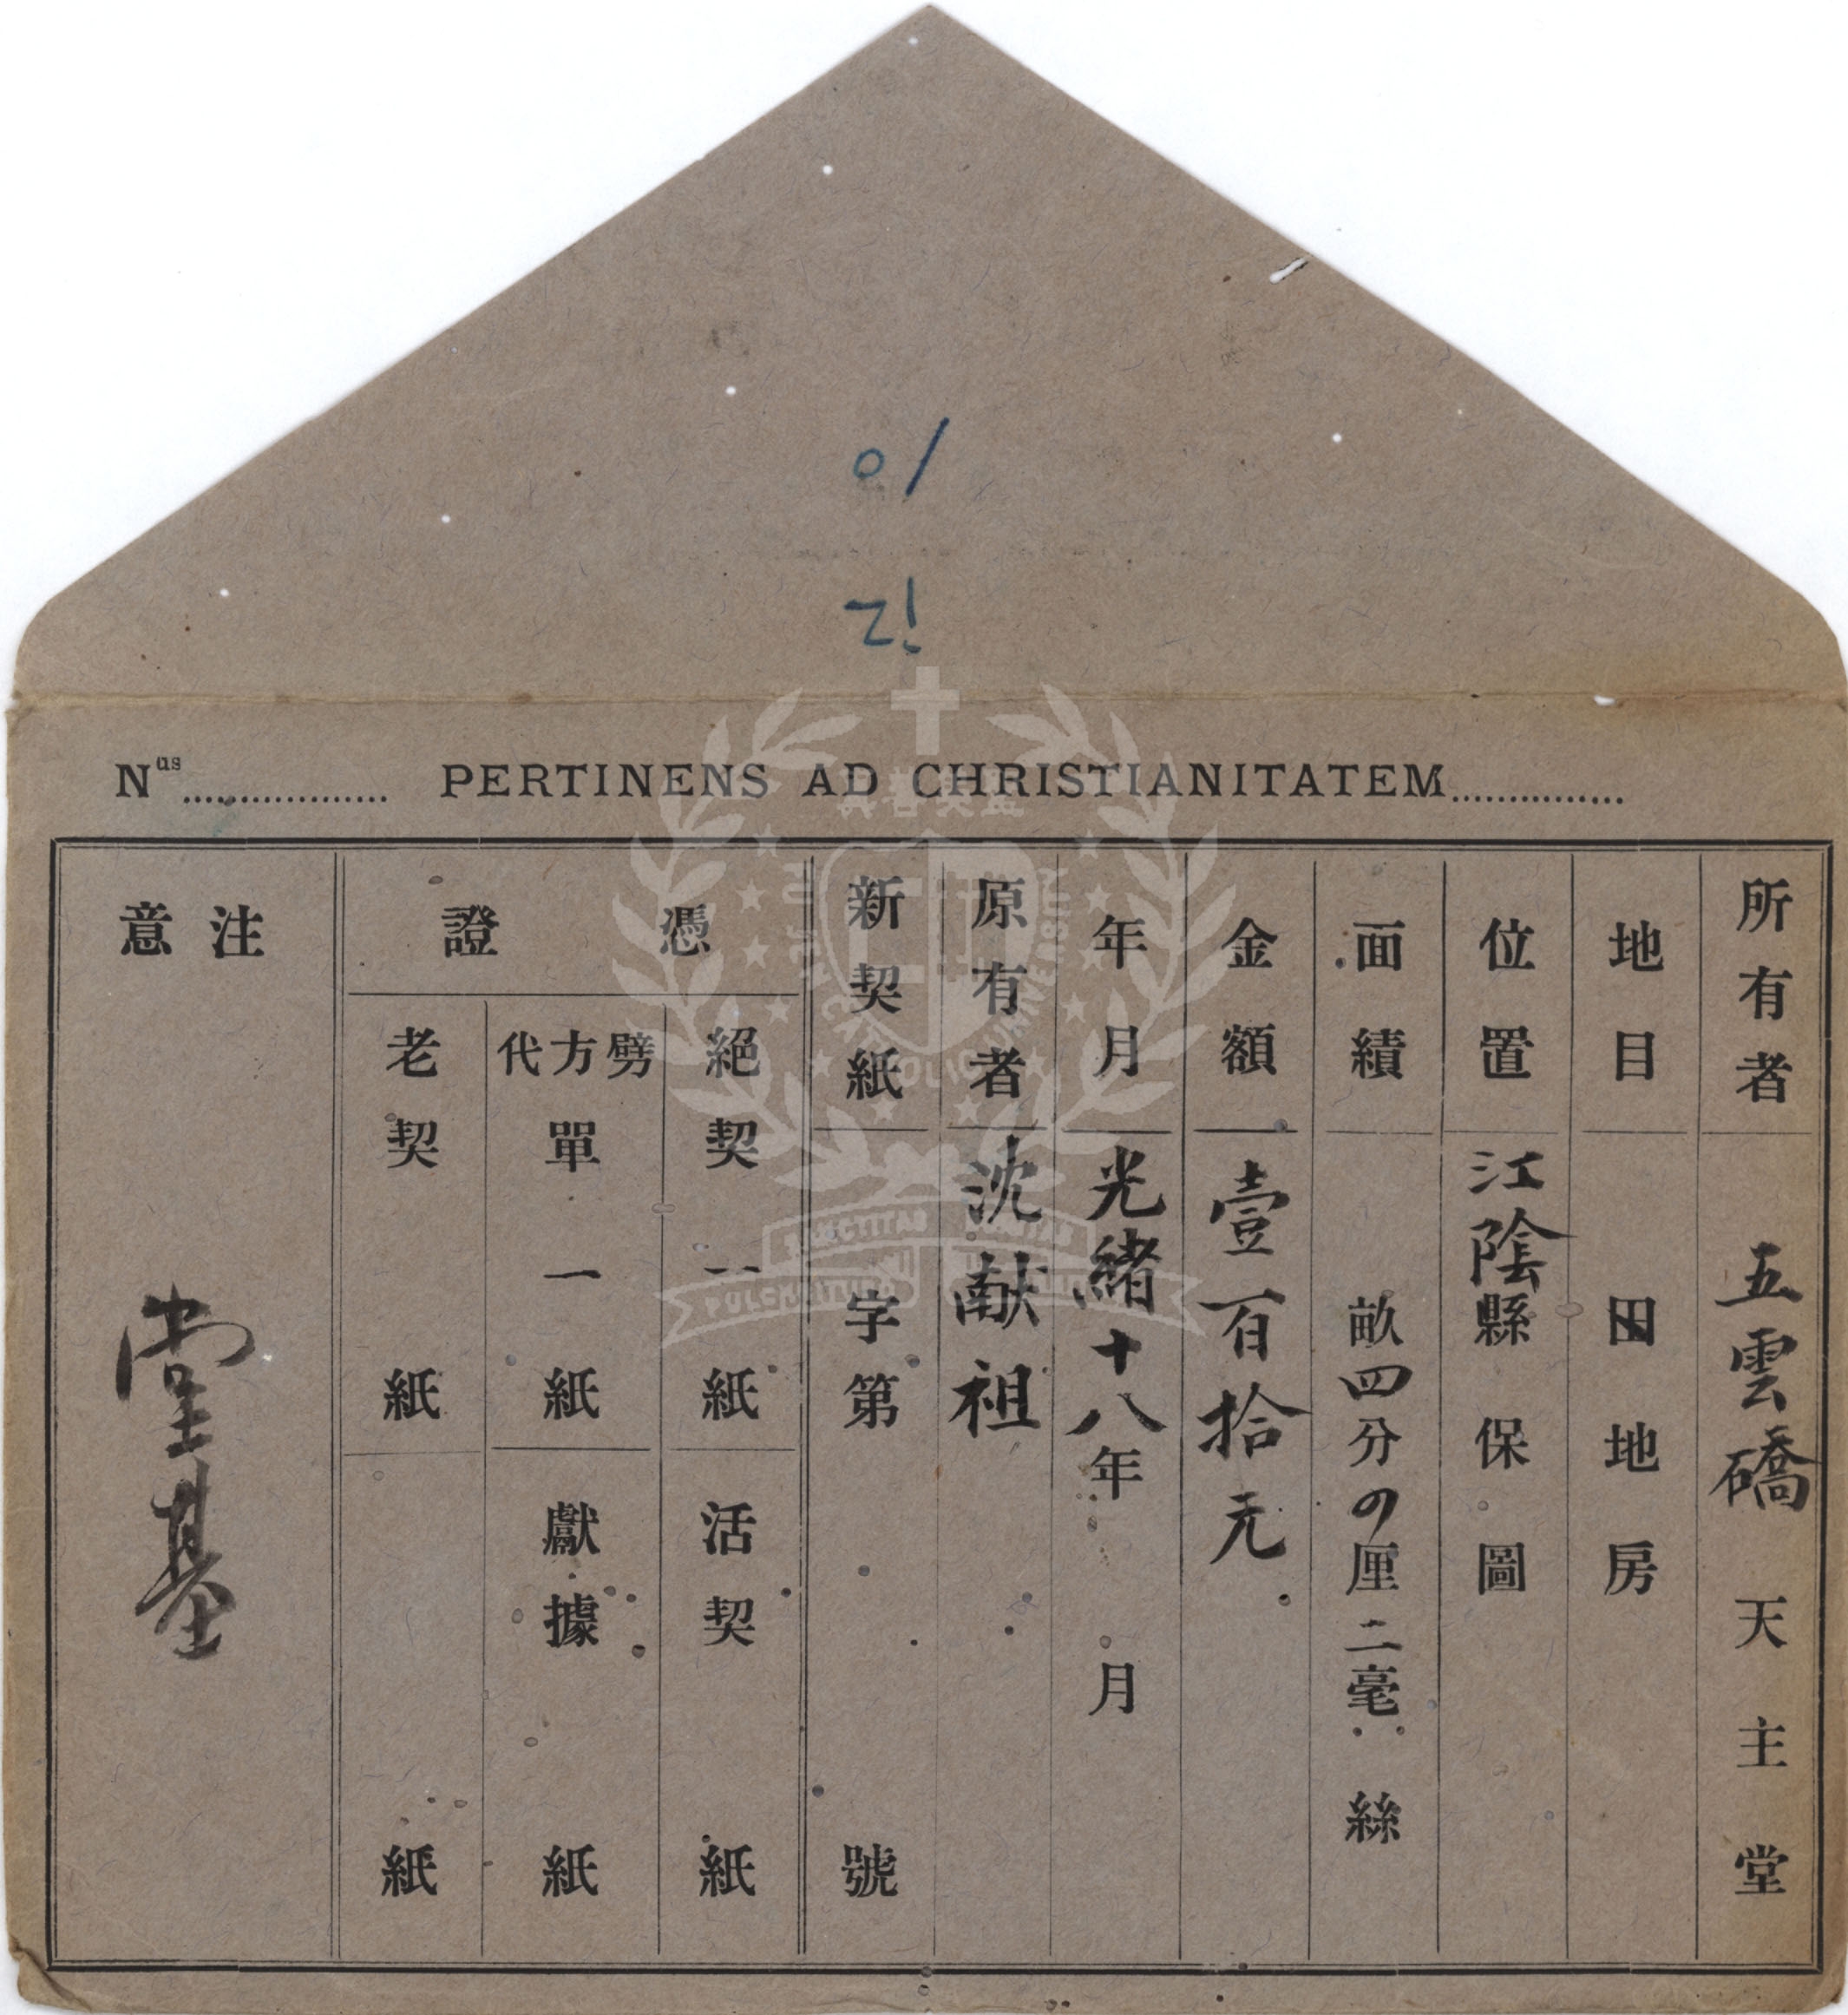 01
N^us .................. PERTINENS AD CHRISTIANITATEM...............
所有者 五雲礄天主堂
地目 田地房
位置 江陰縣 保 圖
面績 畝四分0厘二毫 絲
金額 壹百拾元
年月 光緒十八年 月
原有者 沈献祖
新契紙 字第 號
憑證
絕契 一紙 活契 紙
劈方代單 一紙 獻據 紙
老契 紙 紙
注意 堂基